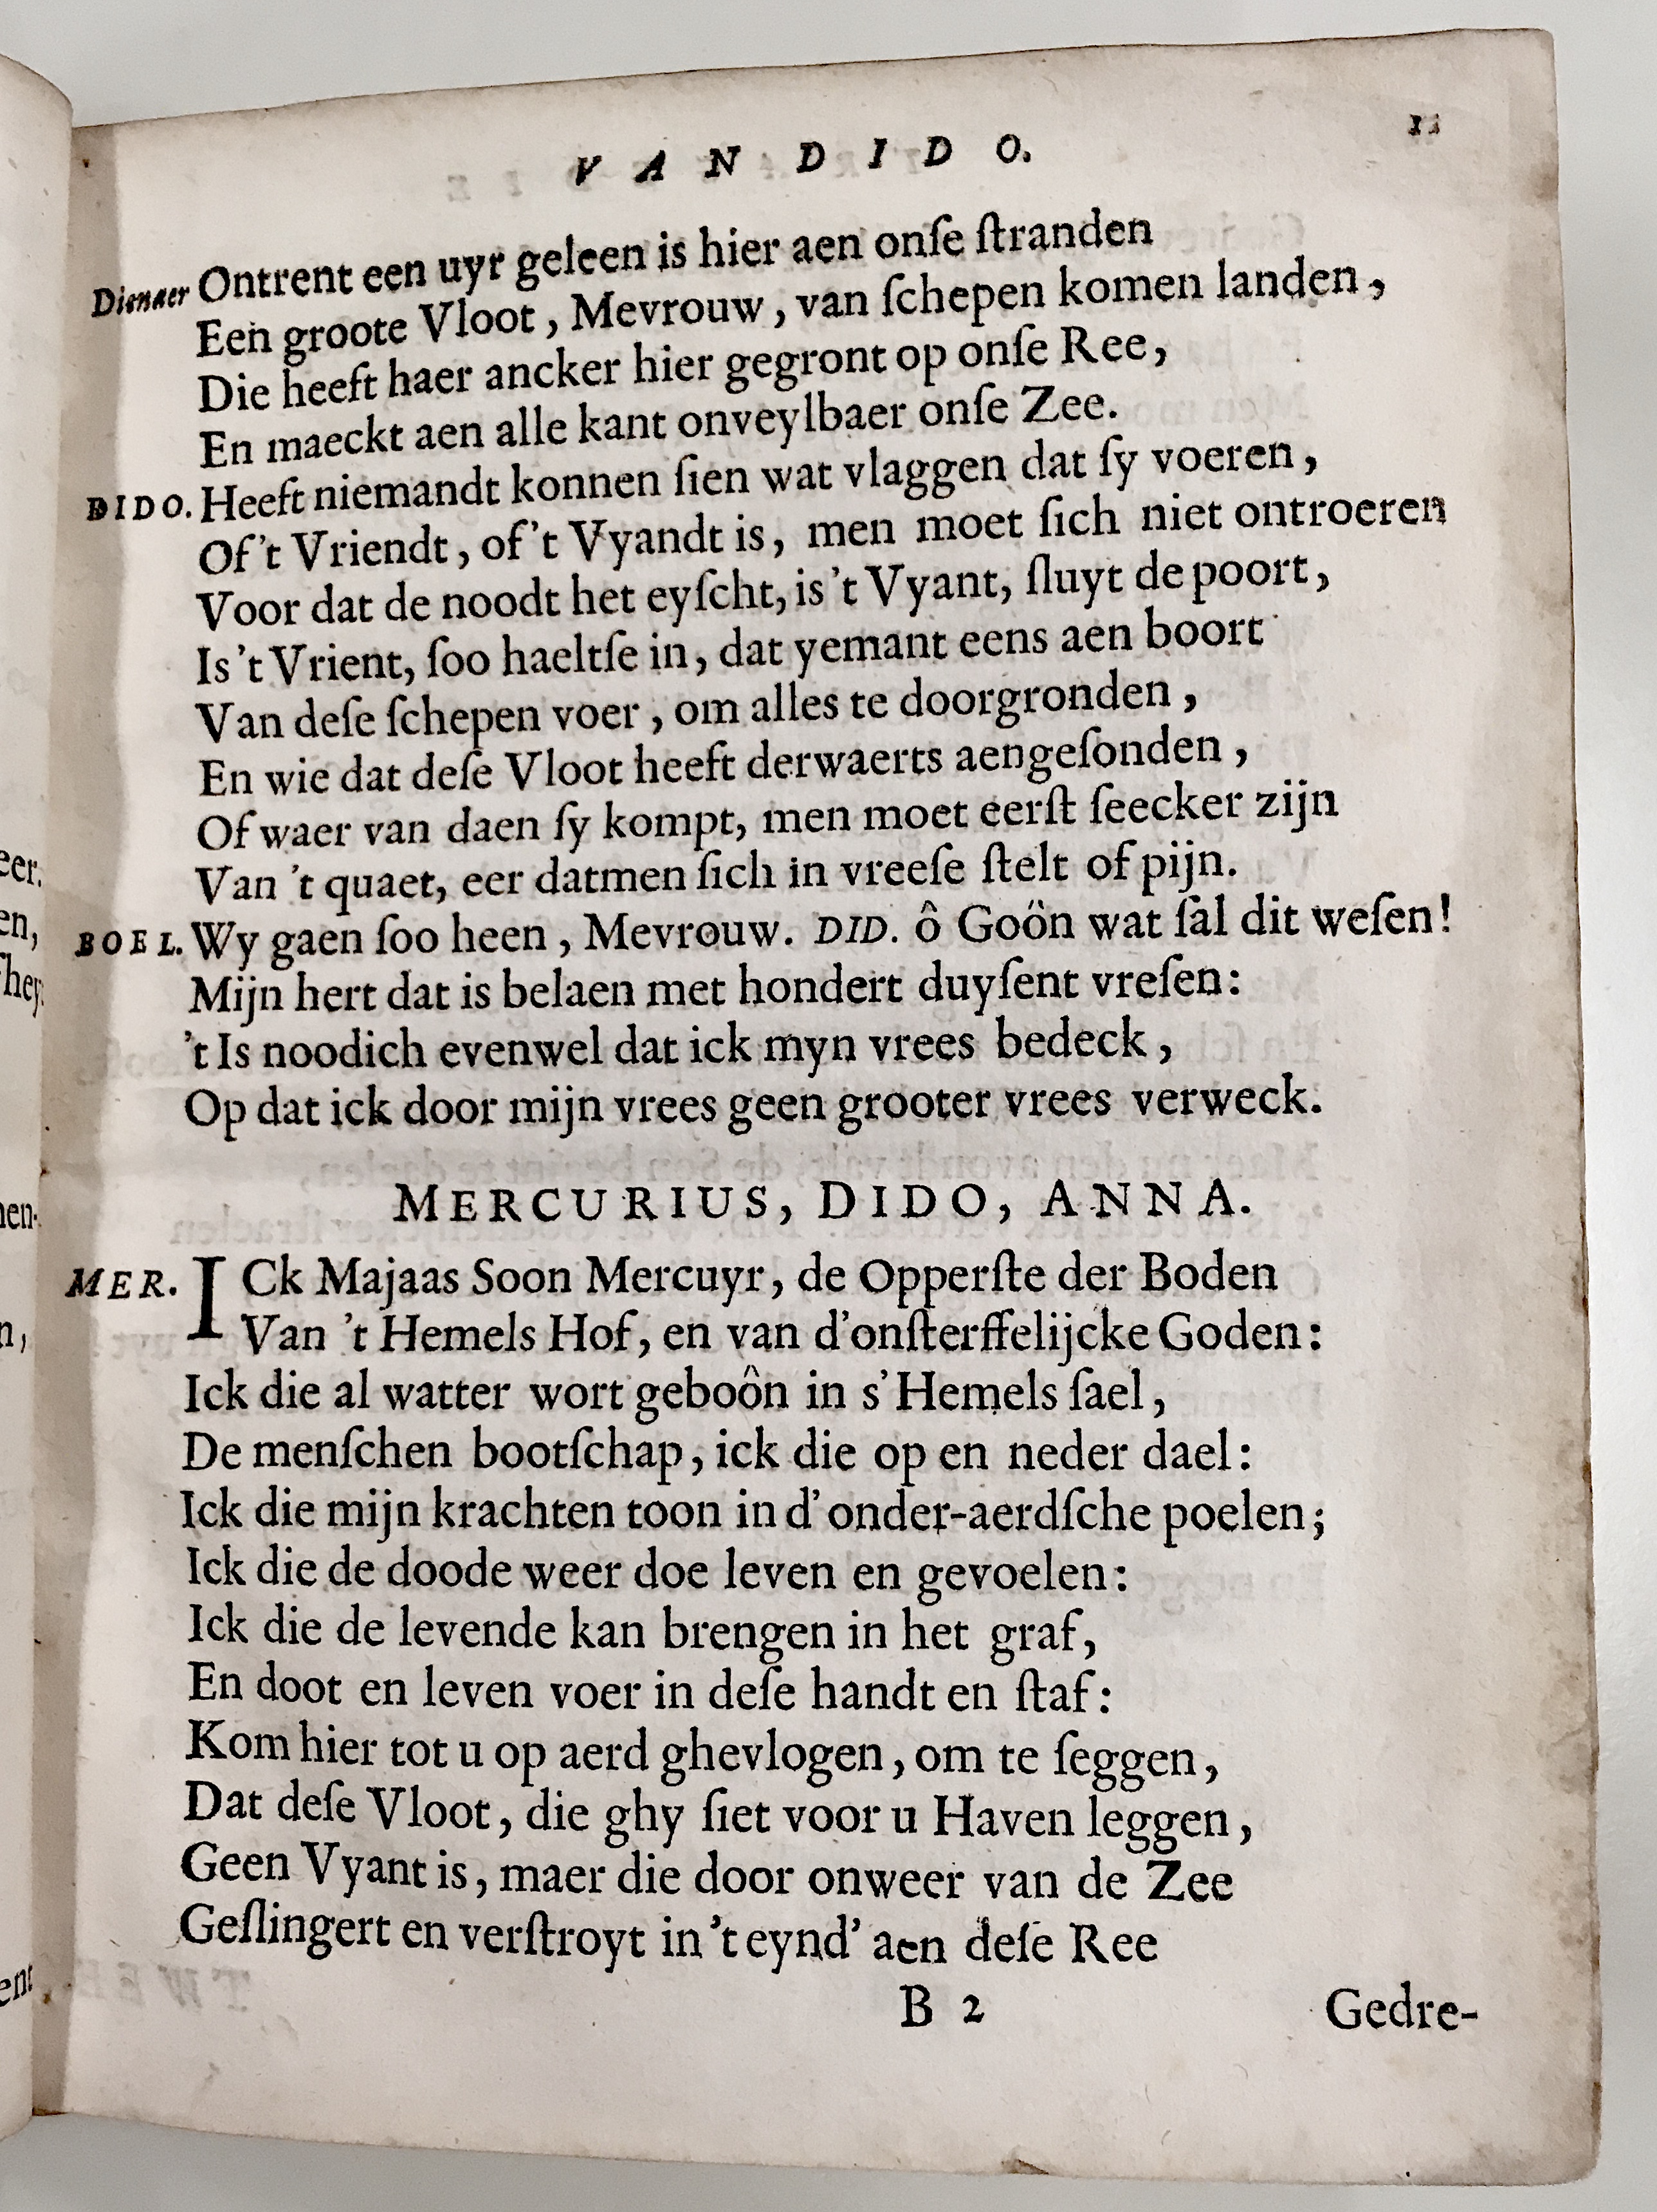 VAN DIDO. 11
Dienaer Ontrent een uyr geleen is hier aen onſe ſtranden
Een groote Vloot, Mevrouw, van ſchepen komen landen,
Die heeft haer ancker hier gegront op onſe Ree,
En maeckt aen alle kant onveylbaer onſe Zee.
DIDO. Heeft niemandt konnen ſien wat vlaggen dat ſy voeren,
Of 't Vriendt, of 't Vyandt is, men moet ſich niet ontroeren
Voor dat de noodt het eyſcht, is 't Vyant, ſluyt de poort,
Is 't Vrient, ſoo haeltſe in, dat yemant eens aen boort
Van deſe ſchepen voer, om alles te doorgronden,
En wie dat deſe Vloot heeft derwaerts aengeſonden,
Of waer van daen ſy kompt, men moet eerſt ſeecker zijn
Van 't quaet, eer datmen ſich in vreeſe ſtelt of pijn.
BOEL. Wy gaen ſoo heen, Mevrouw. DID. ô Goön wat ſal dit weſen!
Mijn hert dat is belaen met hondert duyſent vreſen:
't Is noodich evenwel dat ick myn vrees bedeck,
Op dat ick door mijn vrees geen grooter vrees verweck.
MERCURIUS, DIDO, ANNA.
MER. ICk Majaas Soon Mercuyr, de Opperſte der Boden
Van 't Hemels Hof, en van d'onſterffelijcke Goden:
Ick die al watter wort geboôn in s'Hemels ſael,
De menſchen bootſchap, ick die op en neder dael:
Ick die mijn krachten toon in d'onder-aerdſche poelen;
Ick die de doode weer doe leven en gevoelen:
Ick die de levende kan brengen in het graf,
En doot en leven voer in deſe handt en ſtaf:
Kom hier tot u op aerd ghevlogen, om te ſeggen,
Dat deſe Vloot, die ghy ſiet voor u Haven leggen,
Geen Vyant is, maer die door onweer van de Zee
Geſlingert en verſtroyt in 't eynd' aen deſe Ree
B 2 Gedre-